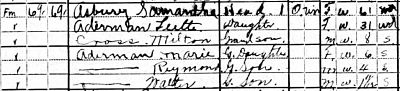 Fm 69 69 Asbury Samantha Head 1 O F W 61 Wd
" Aderman Lutte Daughter F W 31 Wd
" Cross Milton Grandson M W 8 S
" Aderman Marie G. Daughter F W 6 S
" — Reymond G. Son M W 4 S
" — Walter G. Son M W S